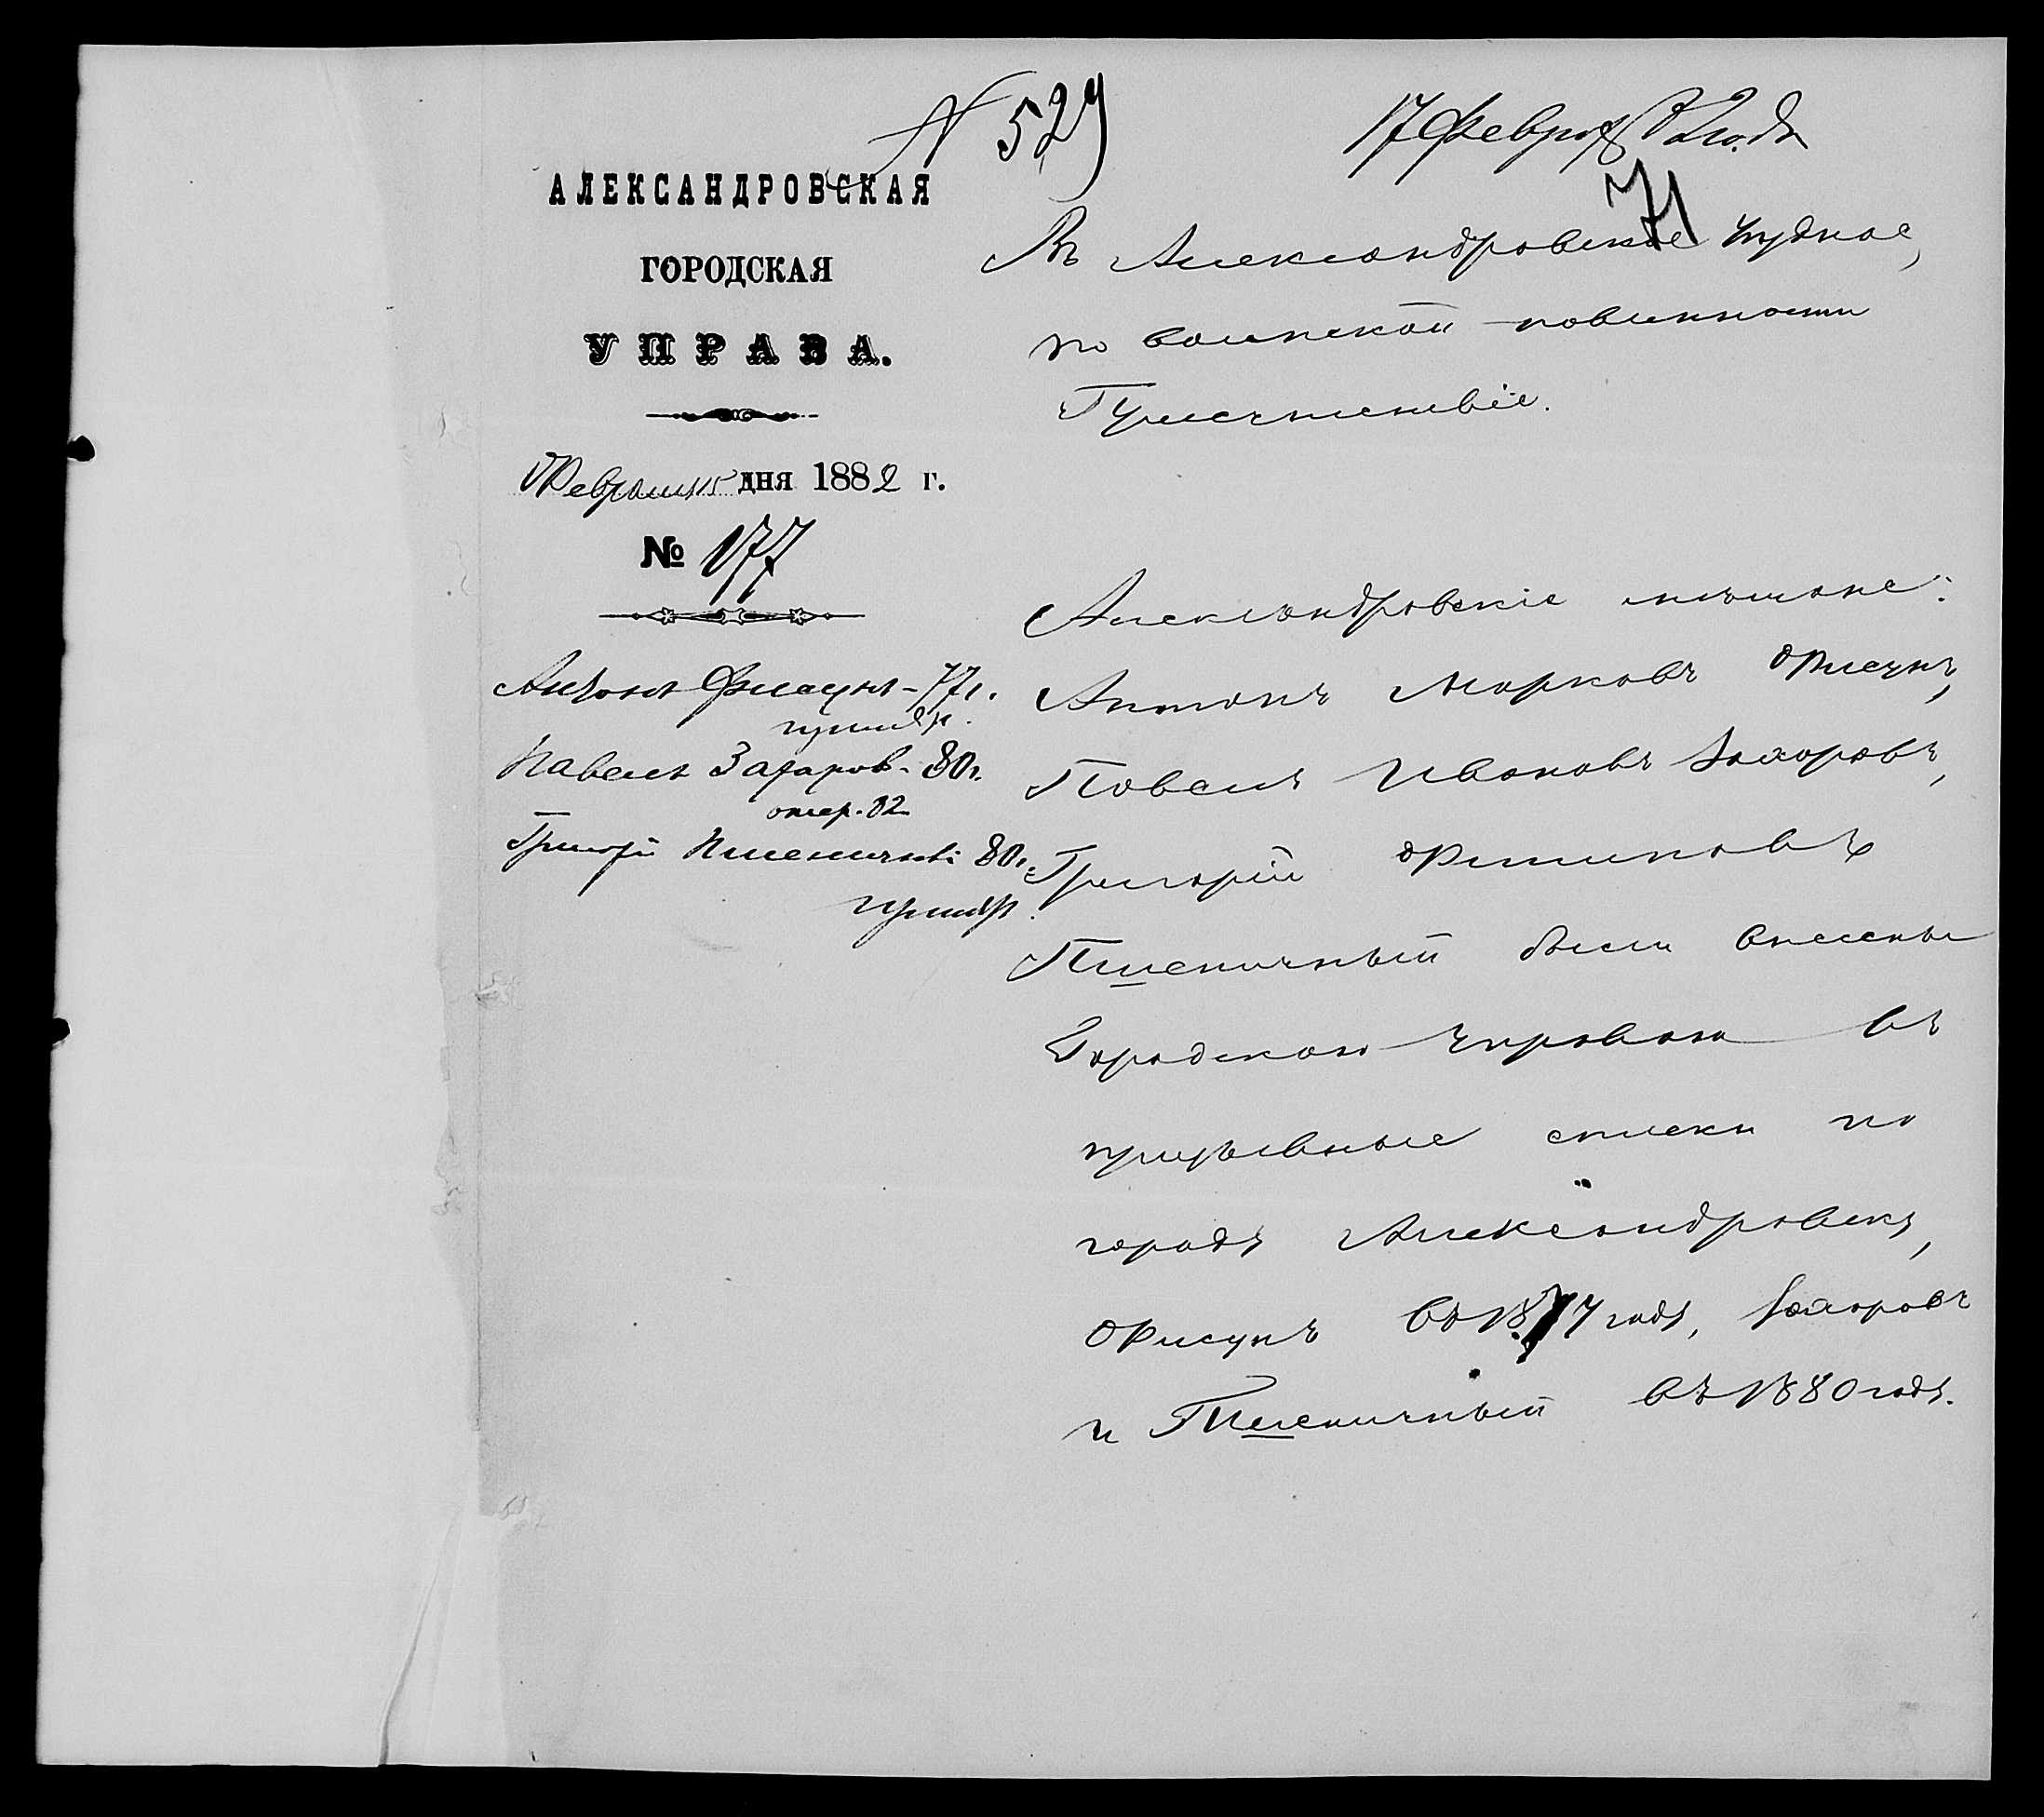 N 529
17 Февр 82 года
71
АЛЕКСАНДРОВСКАЯ
ГОРОДСКАЯ
УПРАВА.
Февраля 15 дня 1882 г.
№ 177
Антонъ Фисунъ - 77 г.
Павелъ Захаров - 80 г.
отср. 82
Григорій Пшеничный 80 г.
Въ Александровское Уѣздное,
по воинской повинности
Присутствіе.
Александровскіе мѣщане:
Антонъ Марковъ Фисунъ,
Павелъ Ивановъ Захаровъ,
Григорій Филиповъ
Пшеничный были внесены
Городскою Управою въ
призывные списки по
городу Александровску,
Фисунъ въ 1877 году, Захаровъ
и Пшеничный въ 1880 году.